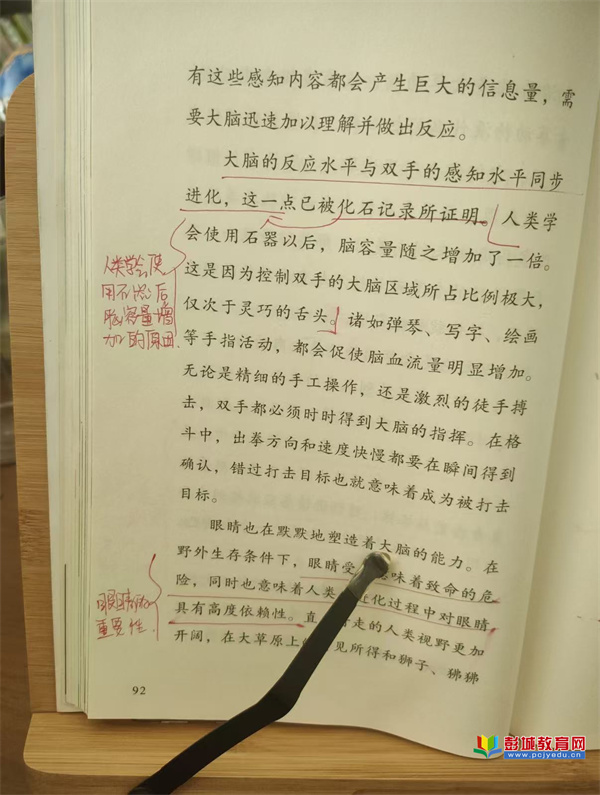 有这些感知内容都会产生巨大的信息量，需
要大脑迅速加以理解并做出反应。
大脑的反应水平与双手的感知水平同步
进化，这一点已被化石记录所证明。人类学
会使用石器以后，脑容量随之增加了一倍。
这是因为控制双手的大脑区域所占比例极大，
仅次于灵巧的舌头。诸如弹琴、写字、绘画
等手指活动，都会促使脑血流量明显增加。
无论是精细的手工操作，还是激烈的徒手搏
击，双手都必须时时得到大脑的指挥。在格
斗中，出拳方向和速度快慢都要在瞬间得到
确认，错过打击目标也就意味着成为被打击
目标。
眼睛也在默默地塑造着大脑的能力。在
野外生存条件下，眼睛受 意味着致命的危
险，同时也意味着人类 进化过程中对眼睛
具有高度依赖性。直 走的人类视野更加
开阔，在大草原上 见所得和狮子、狒狒
92
人类学会使
用石器后
脑容量增
加的原因
眼睛的
重要性
彭城教育网
www.pcjyedu.cn